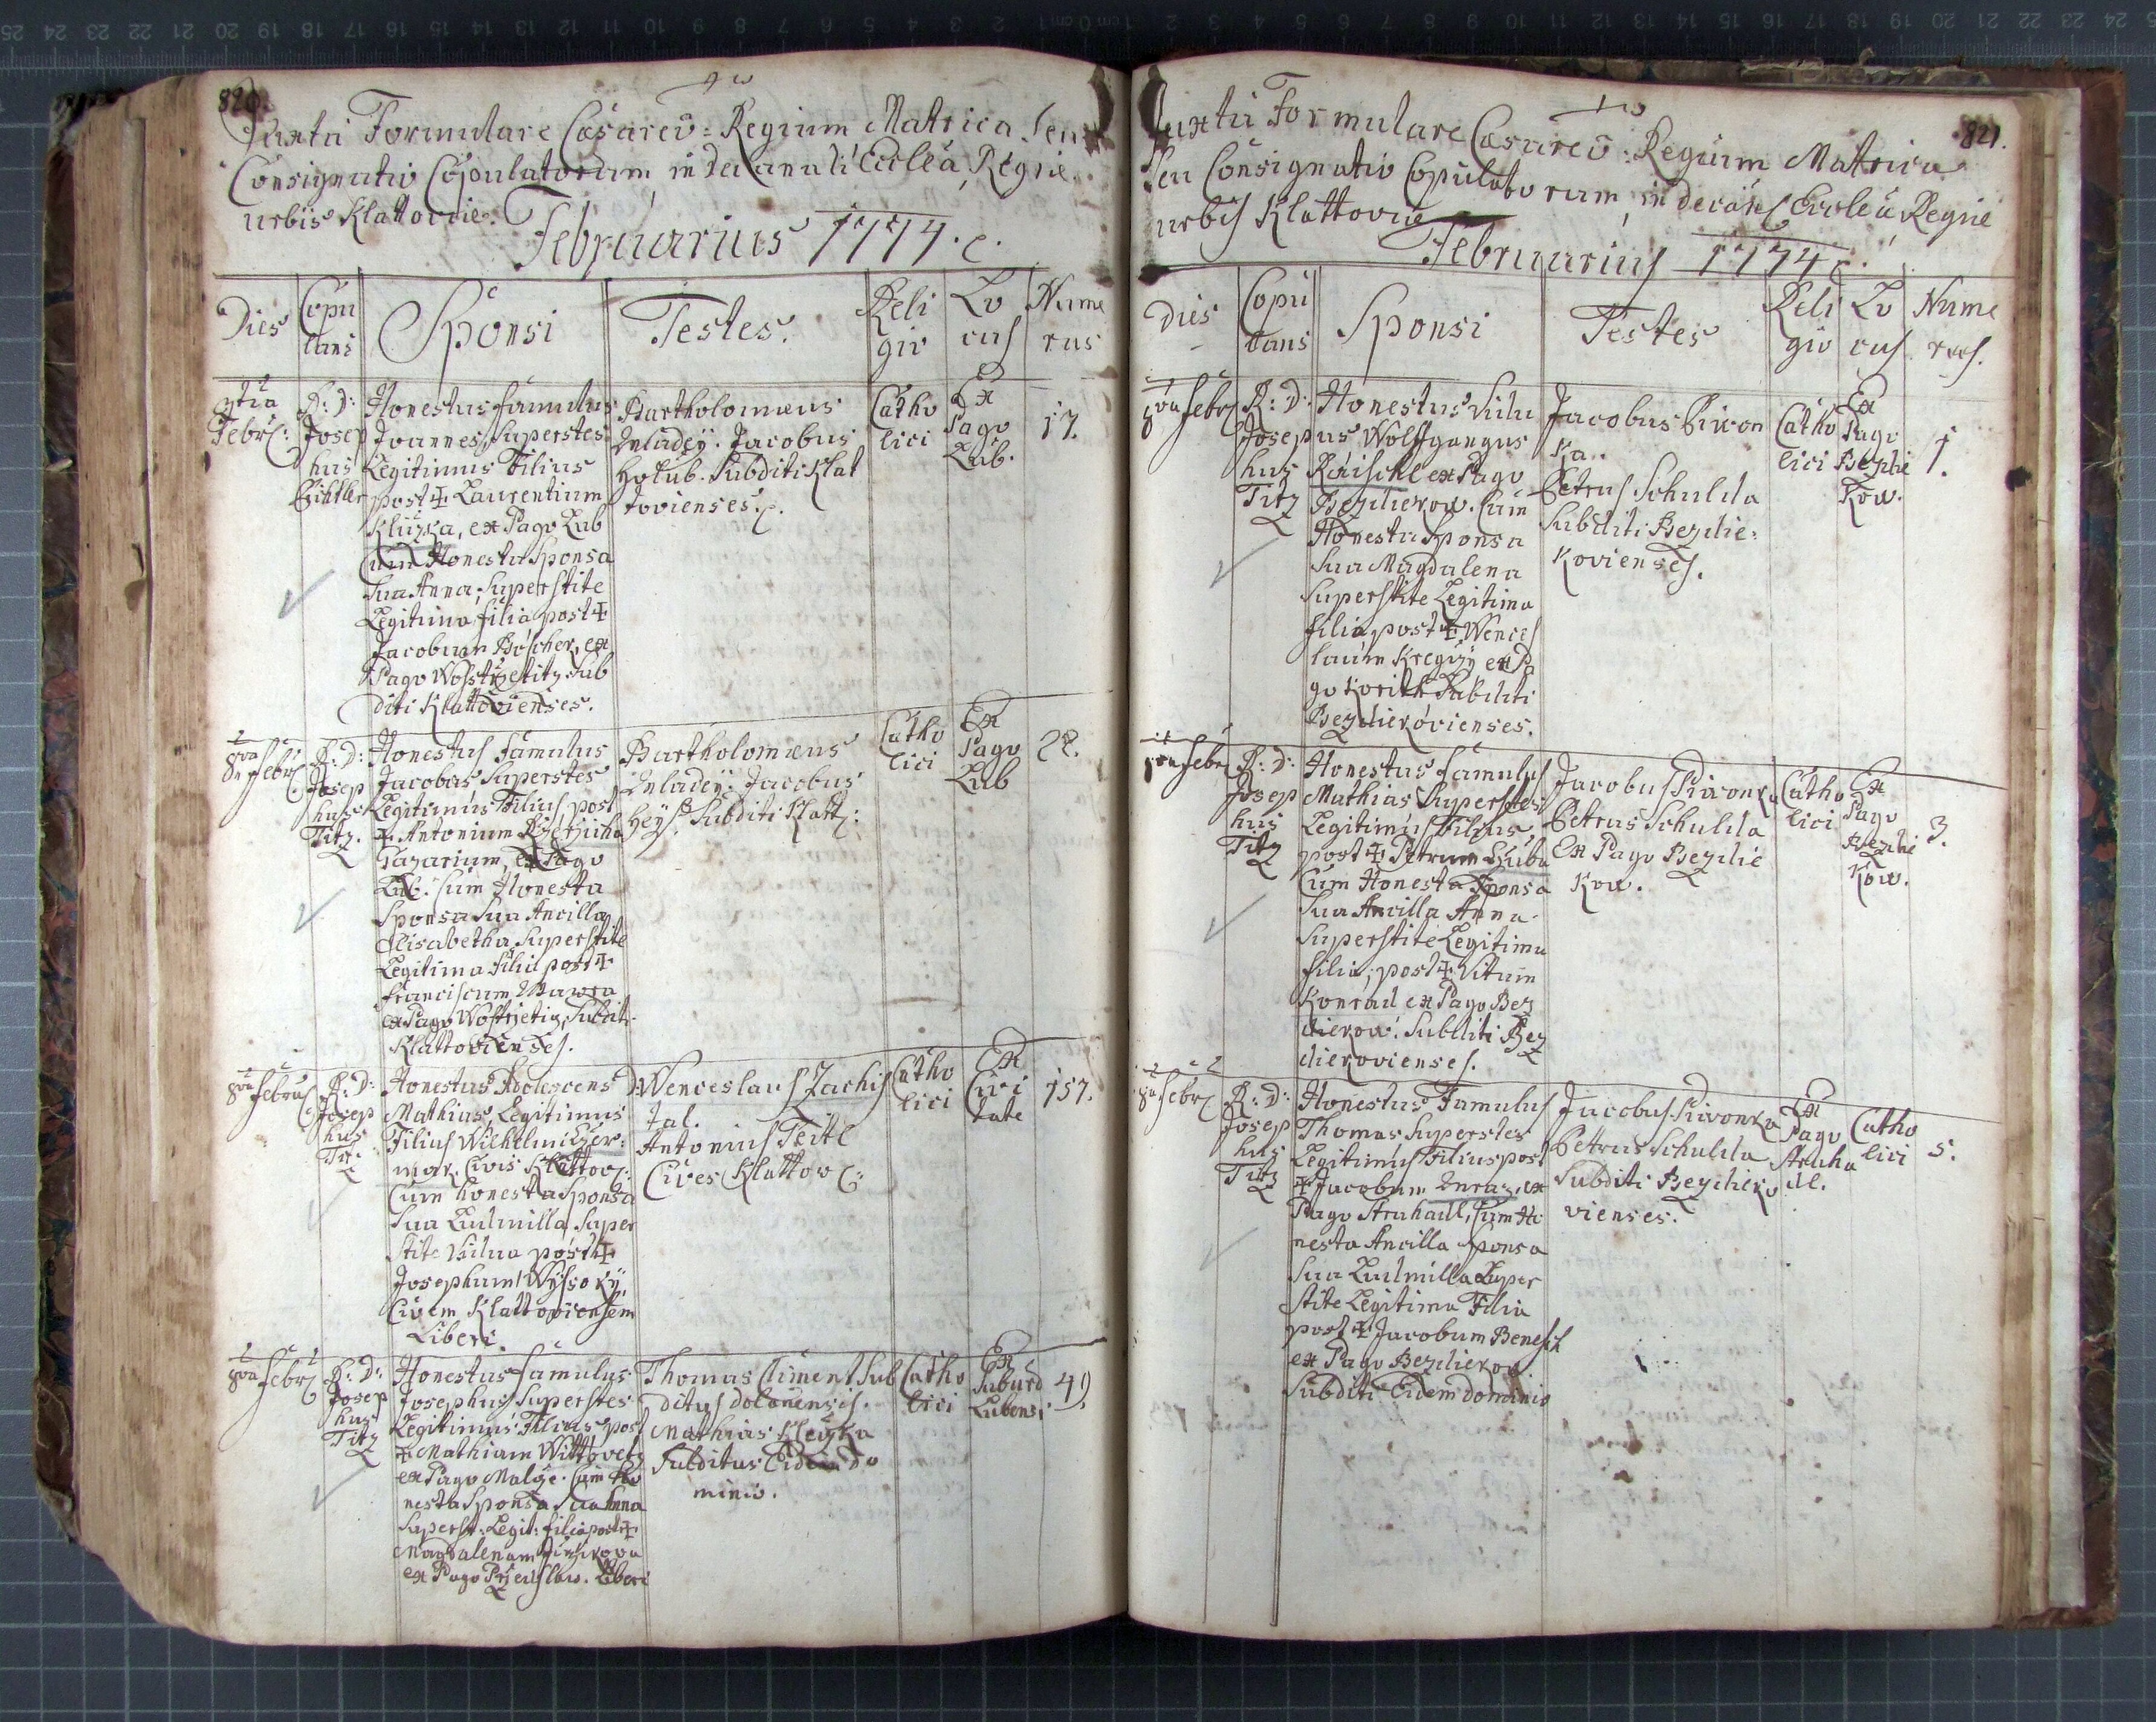 820.
Juxta Formulare Cæsareo-Regium Matrica Seu
Consignatio Copulatorum, in decanali Ecclea, Regiæ
urbis Klattoviæ.
Februarius 1774.
Dies
Copu
lans
Sponsi
Testes.
Reli
gio
Lo
cus
Nume
rus
Febr:
R: D:
Josep
hus
Honestus famulus
Joannes, Superstes
Legitimus Filius
post ‡ Laurentium
Kluzka, ex Pago Lub
Cum Honesta Sponsa
Sua Anna, Superstite
Legitima filia post ‡
Jacobum Böscher, ex
Pago Wostrzetitz Sub
diti Klattovienses.
Bartholomæus
Mladey. Jacobus
Holub. Subditi Klat
tovienses.
Catho
lici
Ex
Pago
Lub.
17.
8va Febr
R: D:
Josep
hus
Titz.
Honestus famulus
Jacobus, Superstes
Legitimus Filius post
‡ Antonium
ex Pago
Lub. Cum Honesta
Sponsa Sua Ancilla
Elisabetha, Superstite
Legitima filia post ‡
Franciscum Wawra
ex Pago Wostrzetitz, Subditi
Klattovienses.
Bartholomæus
Mladey. Jacobus
Heyß. Subditi Klatt:
Catho
lici
Ex
Pago
Lub
22.
8va Febru
R: D:
Josep
hus
Tit:
Honestus Adolescens
Mathias, Legitimus
Filius Wilhelmi Czer
mak, Civis Klattov:
Cum honesta Sponsa
Sua Ludmilla, Super
stite Vidua post ‡
Josephum Wyssoky,
Civem Klattoviensem
Liberi.
D: Wenceslaus Zachis
tal.
Antonius Teitl
Cives Klattov:
Catho
lici
Ex
Civi
tate
157.
8va Febr
R: D:
Josep
hus
Titz
Honestus famulus
Josephus, Superstes
Legitimus Filius post
‡ Mathiam Wittovetz
ex Pago Malze. Cum Ho
nesta Sponsa Sua Anna
Superst: Legit: filia post ‡
Magdalenam
ex Pago Przenslaw. Liberi
Thomas Climent Sub
ditus dolanensis.
Mathias Kleyka
Subditus Eidem do
minio.
Catho
lici
Ex
Suburb
Lubensi
49.
821.
Juxta Formulare Cæsareo-Regium Matrica
Seu Consignatio Copulatorum, in decan: Ecclea, Regiæ
urbis Klattoviæ
Februarius 1774.
Dies
Copu
lans
Sponsi
Testes
Reli
gio
Lo
cus
Nume
rus.
8va Febr
R: D:
Josep
hus
Titz
Honestus Vidu
us Wolffgangus
Räischl ex Pago
Bezdiekow. Cum
Honesta Sponsa
Sua Magdalena
Superstite Legitima
filia, post ‡ Wences
laum Kregczy ex Pa
go Korith Subditi
Bezdiekovienses.
Jacobus Piwon
ka.
Petrus Schulda
Subditi Bezdie:
kovienses.
Catho
lici
Ex
Pago
Bezdie
kow.
1.
8va Febr
R: D:
Josep
hus
Titz
Honestus famulus
Mathias Superstes
Legitimus Filius
post ‡ Petrum Huba
Cum Honesta Sponsa
Sua Ancilla Anna
Superstite Legitima
filia, post ‡ Vitum
Konrad ex Pago Bez
diekow. Subditi Bez
diekovienses.
Jacobus Piwonka
Petrus Schulda
Ex Pago Bezdie
kow.
Catho
lici
Ex
Pago
Bezdie
kow.
3.
8va Febr
R: D:
Josep
hus
Titz
Honestus Famulus
Thomas Superstes
Legitimus Filius post
‡ Jacobum Mraz, ex
Pago Struhadl, Cum Ho
nesta Ancilla Sponsa
Sua Ludmilla Super
stite Legitima Filia
post ‡ Jacobum Benesch
ex Pago Bezdiekow
Subditi Eidem dominio
Jacobus Piwonka
Petrus Schulda
Subditi Bezdieko
vienses.
Ex
Pago
Struha
dl.
Catho
lici
5.